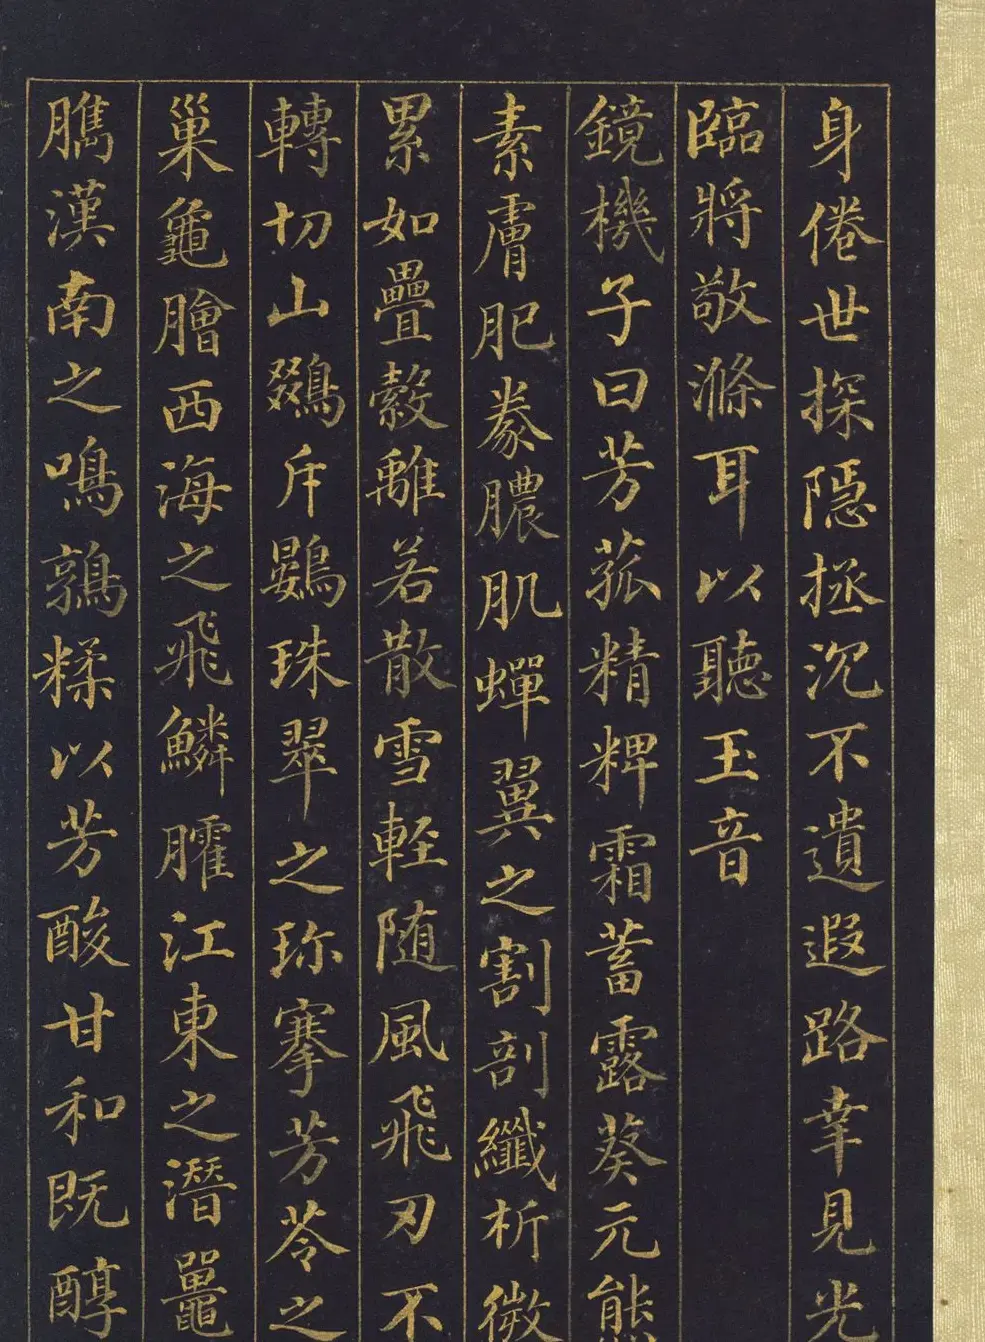 身倦世探隱拯沉不遺遐路幸見光
臨將敬滌耳以聽玉音
鏡機子曰芳菰精粺霜蓄露葵元熊
素膚肥豢膿肌蟬翼之割剖纖析微
累如疊縠離若散雪軽随風飛刃不
轉切山鵽斥鷃珠翠之珎搴芳苓之
巢龜膾西海之飛鱗臛江東之潛鼉
臇漢南之鳴鶉糅以芳酸甘和既醇